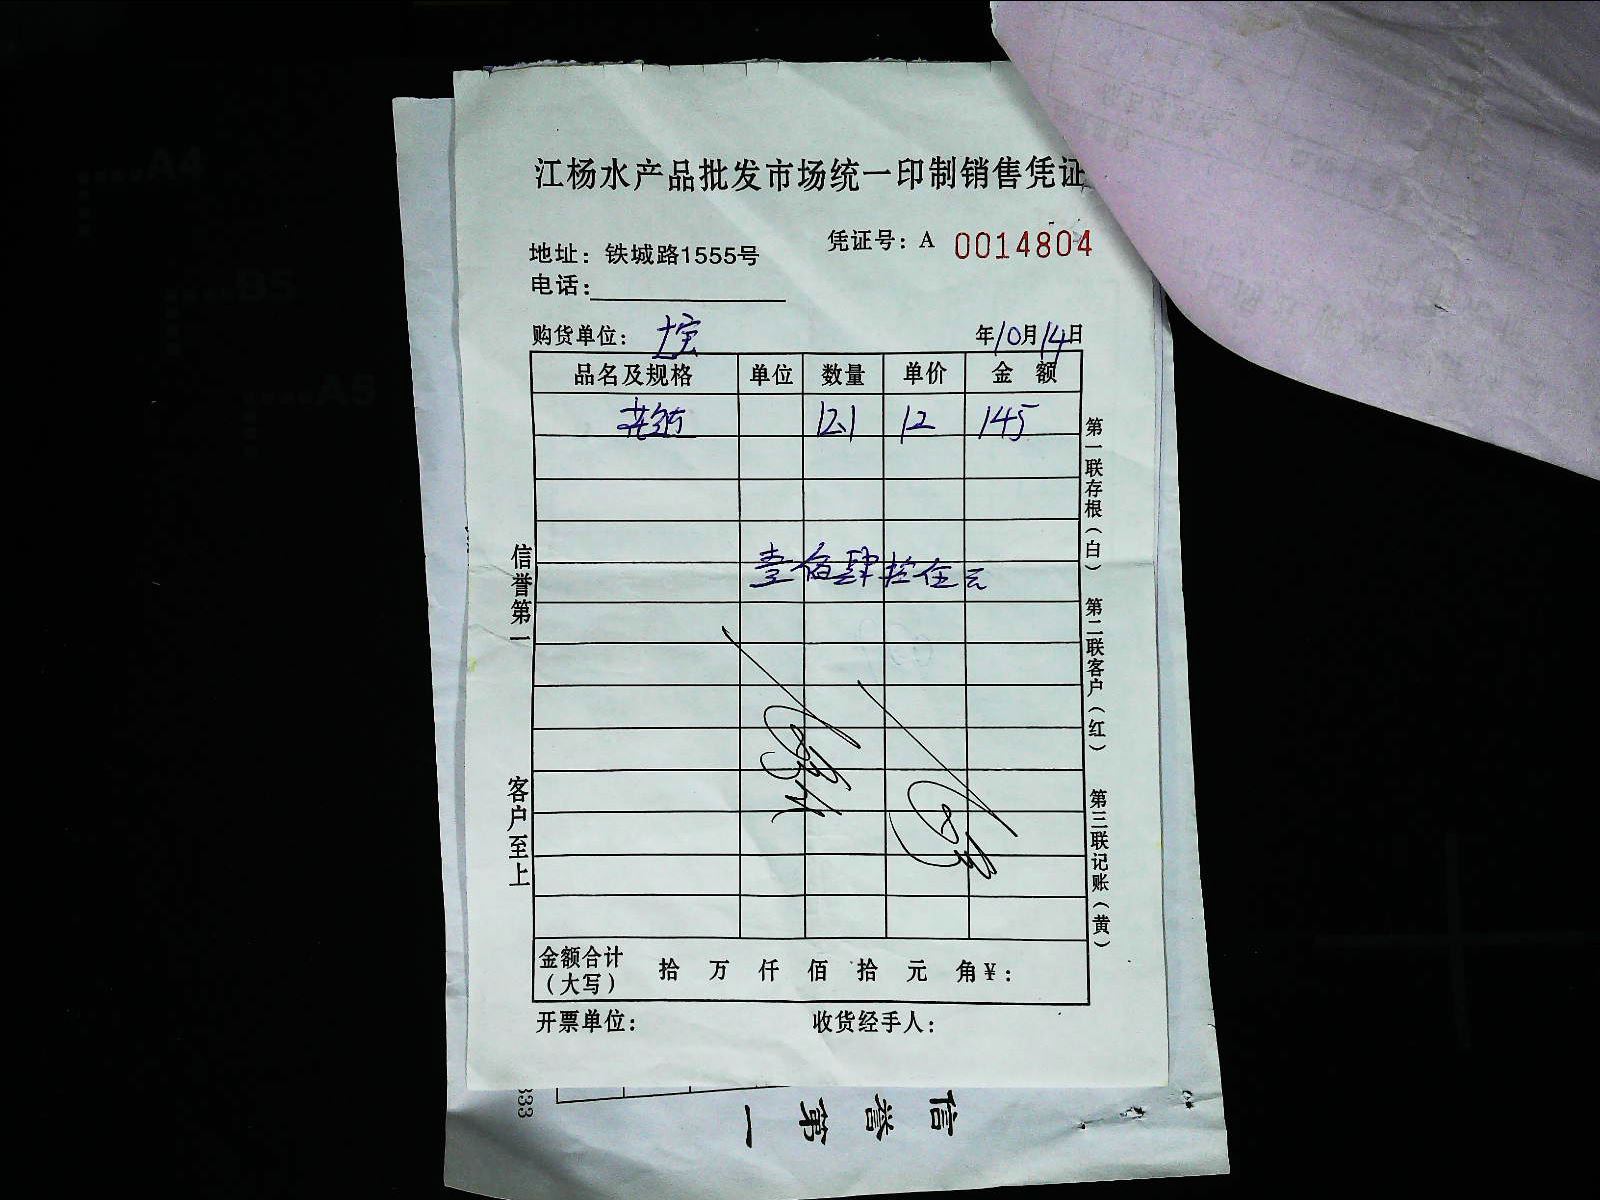 江杨水产品批发市场统一印制销售凭证
地址：铁城路1555号
凭证号：A 0014804
电话：
购货单位：
年10月14日
品名及规格 单位 数量 单价 金额
12.1 12 145
壹佰肆拾伍元
金额合计（大写） 拾 万 仟 佰 拾 元 角 ¥：
开票单位： 收货经手人：
信誉第一
客户至上
第一联存根（白）
第二联客户（红）
第三联记账（黄）
333
信誉第一
A4
B5
A5